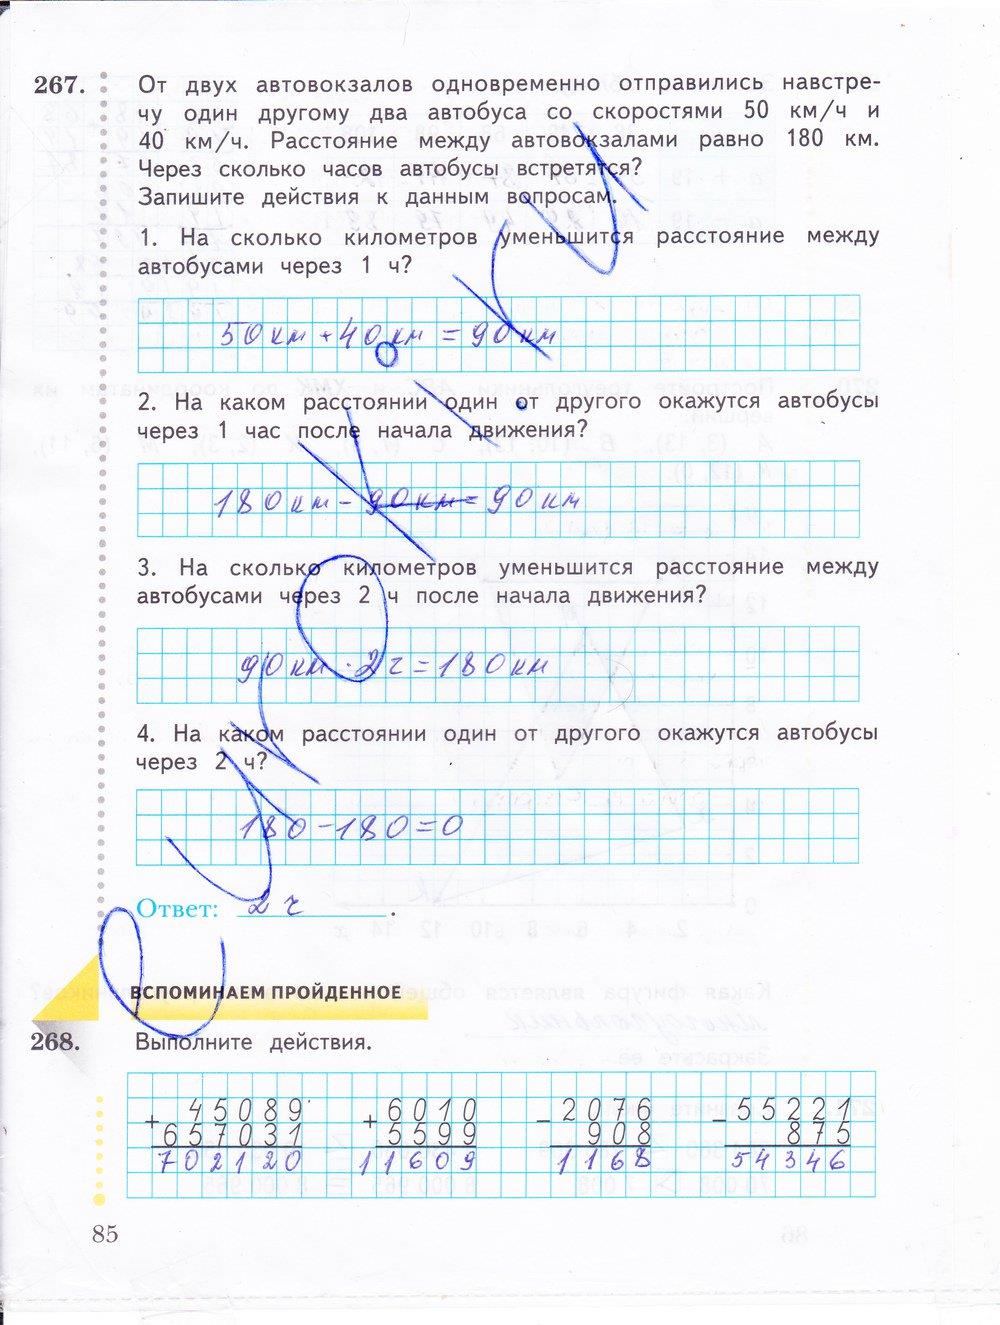 267. От двух автовокзалов одновременно отправились навстре-
чу один другому два автобуса со скоростями 50 км/ч и
40 км/ч. Расстояние между автовокзалами равно 180 км.
Через сколько часов автобусы встретятся?
Запишите действия к данным вопросам.
1. На сколько километров уменьшится расстояние между
автобусами через 1 ч?
50 км + 40 км = 90 км
2. На каком расстоянии один от другого окажутся автобусы
через 1 час после начала движения?
180 км - 90 км = 90 км
3. На сколько километров уменьшится расстояние между
автобусами через 2 ч после начала движения?
90 км · 2 ч = 180 км
4. На каком расстоянии один от другого окажутся автобусы
через 2 ч?
180 - 180 = 0
Ответ: 2 ч.
ВСПОМИНАЕМ ПРОЙДЕННОЕ
268. Выполните действия.
+ 45089 + 6010 - 2076 - 55221
657031 5599 908 875
702120 11609 1168 54346
85
euroki.ru